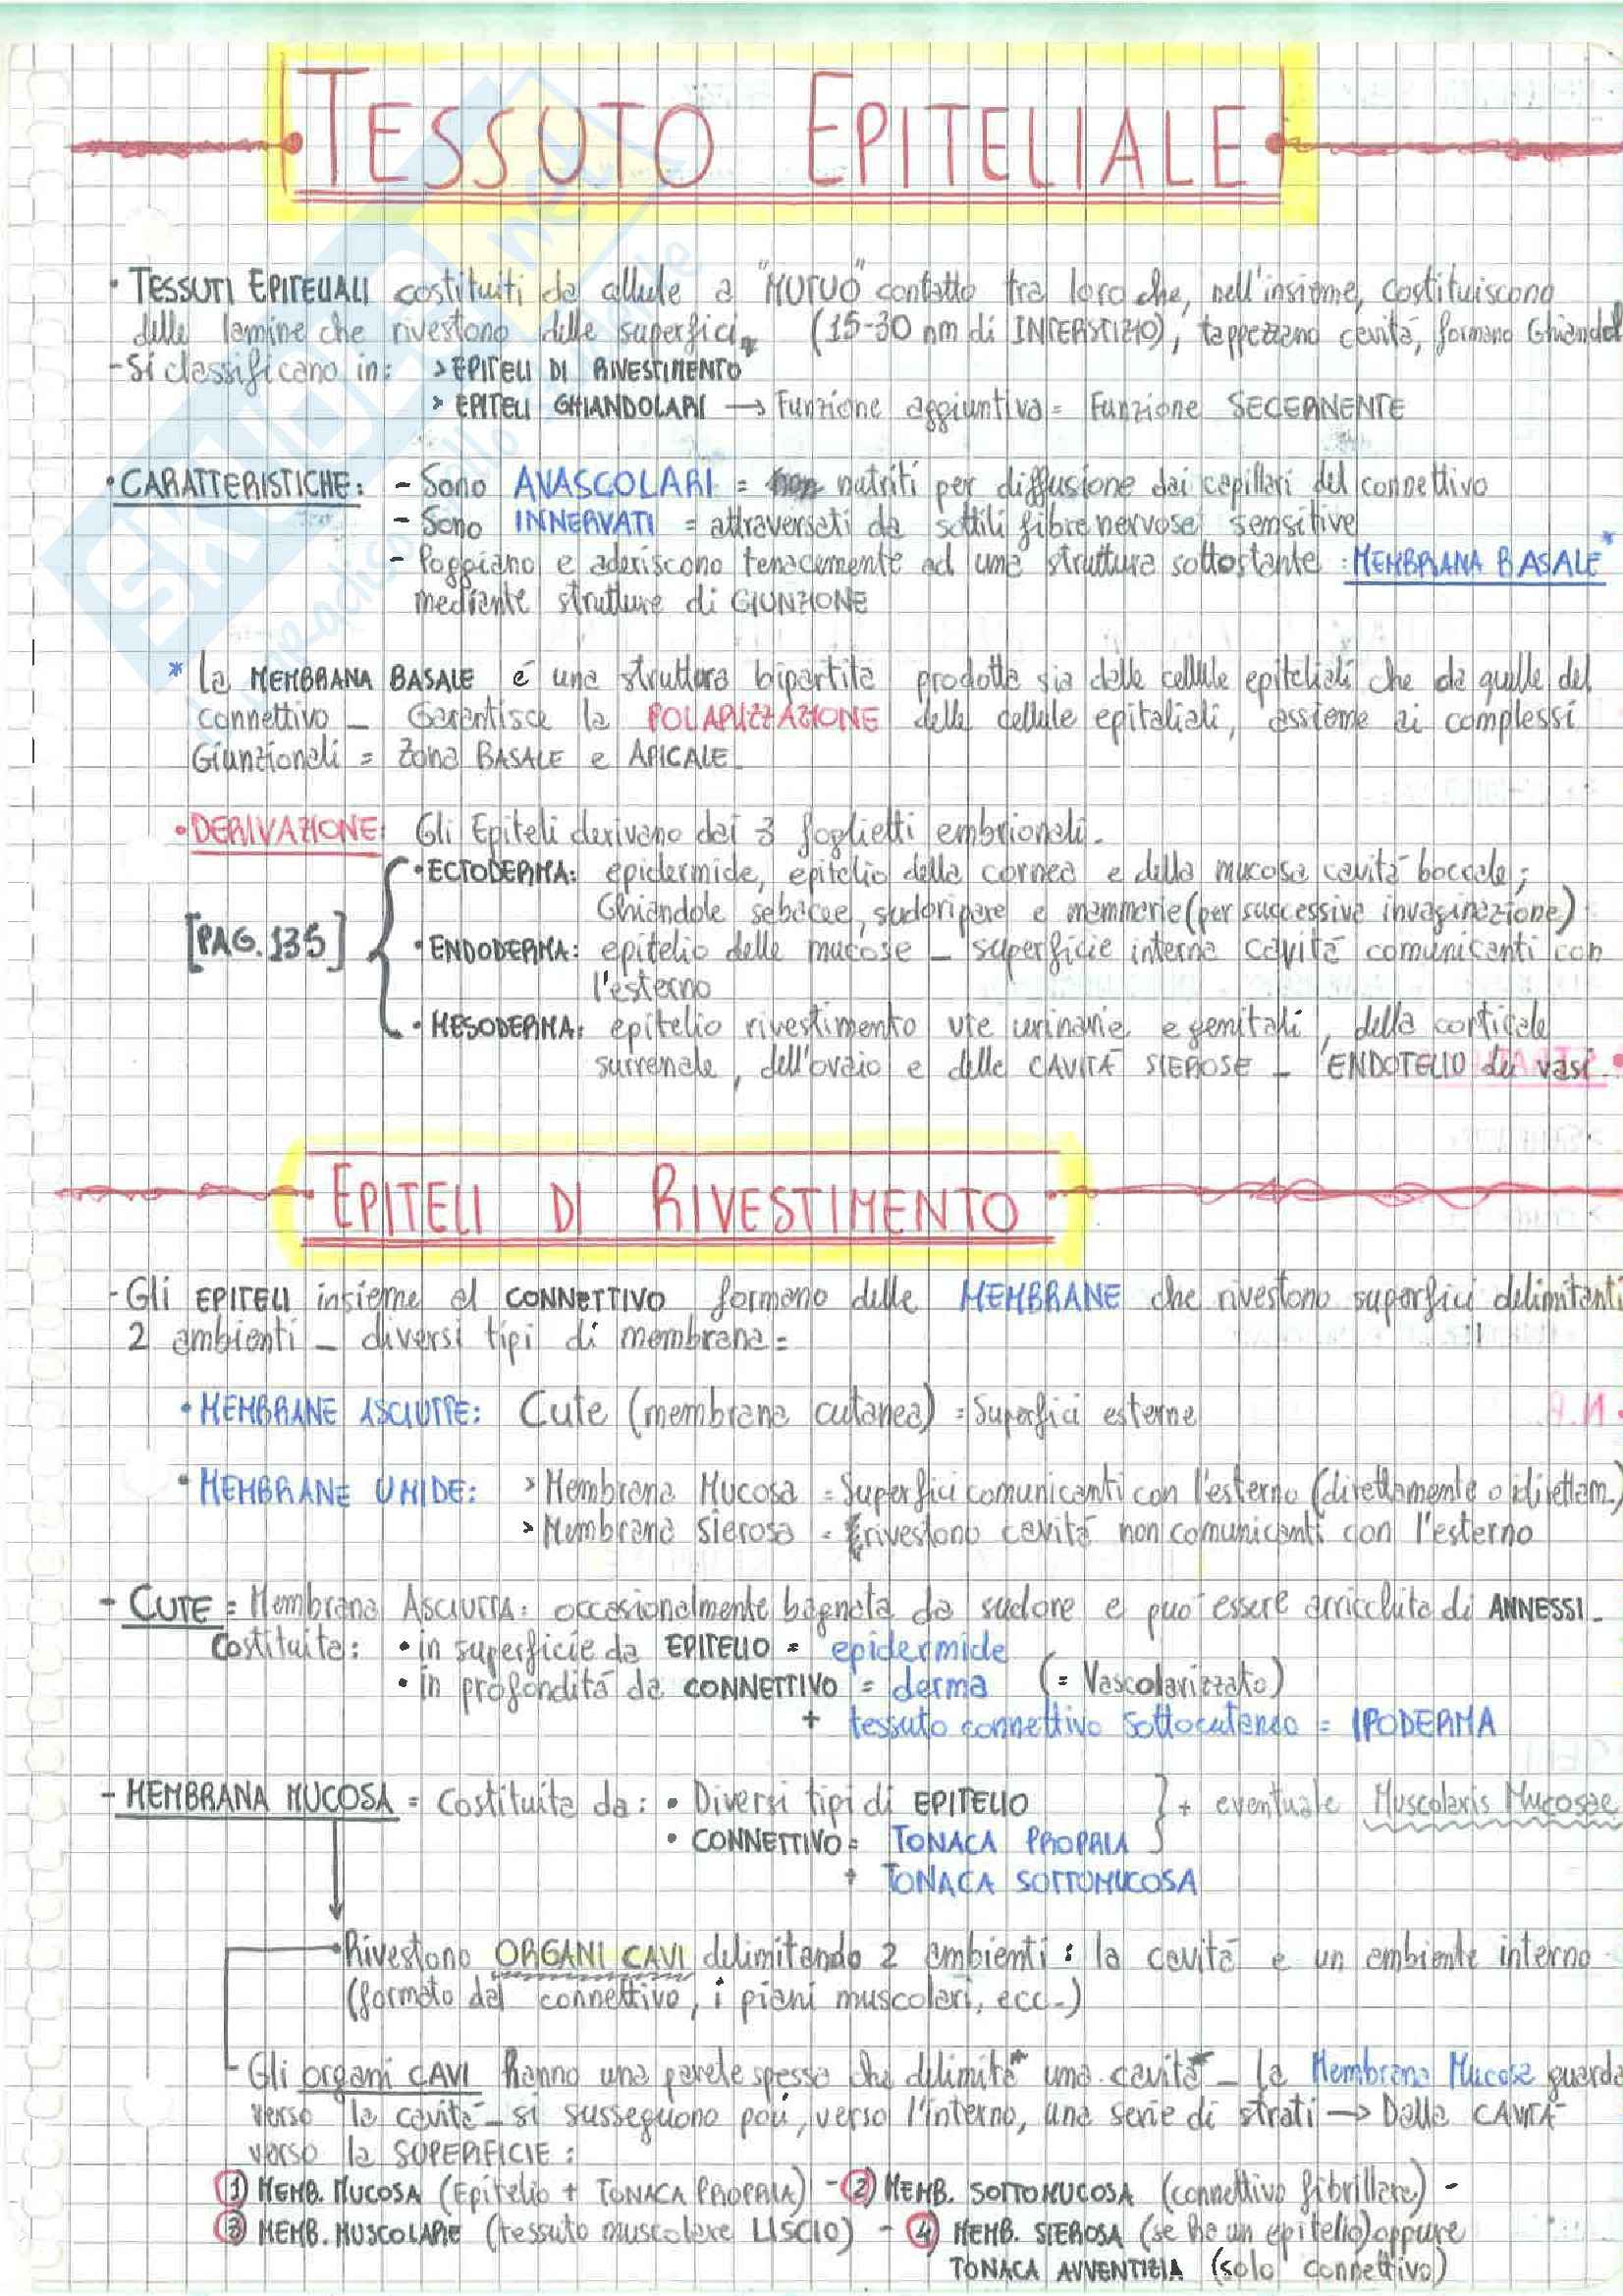 TESSUTO EPITELIALE
• TESSUTI EPITELIALI costituiti da cellule a "MUTUO" contatto tra loro che, nell'insieme, costituiscono
delle lamine che rivestono delle superfici, (15-30 nm di INTERSTIZIO), tappezzano cavità, formano Ghiandol
- Si classificano in: > EPITELI DI RIVESTIMENTO
> EPITELI GHIANDOLARI → Funzione aggiuntiva = Funzione SECERNENTE
• CARATTERISTICHE: - Sono AVASCOLARI = nutriti per diffusione dai capillari del connettivo
- Sono INNERVATI = attraversati da sottili fibre nervose sensitive
- Poggiano e aderiscono tenacemente ad una struttura sottostante: MEMBRANA BASALE*
mediante strutture di GIUNZIONE
* La MEMBRANA BASALE é una struttura bipartita prodotta sia dalle cellule epiteliali che da quelle del
connettivo - Garantisce la POLARIZZAZIONE delle cellule epiteliali, assieme ai complessi
Giunzionali = Zona BASALE e APICALE -
• DERIVAZIONE: Gli Epiteli derivano dai 3 foglietti embrionali -
• ECTODERMA: epidermide, epitelio della cornea e della mucosa cavità boccale;
Ghiandole sebacee, sudoripare e mammarie (per successiva invaginazione)
[PAG. 135] • ENDODERMA: epitelio delle mucose - superficie interna cavità comunicanti con
l'esterno
• MESODERMA: epitelio rivestimento vie urinarie e genitali, della corticale
surrenale, dell'ovaio e delle CAVITÀ SIEROSE - ENDOTELIO dei vasi.
EPITELI DI RIVESTIMENTO
- Gli EPITELI insieme al CONNETTIVO formano delle MEMBRANE che rivestono superfici delimitanti
2 ambienti - diversi tipi di membrana =
• MEMBRANE ASCIUTTE: Cute (membrana cutanea) = Superfici esterne
• MEMBRANE UMIDE: > Membrana Mucosa = Superfici comunicanti con l'esterno (direttamente o idirettam.)
> Membrana Sierosa = rivestono cavità non comunicanti con l'esterno
- CUTE = Membrana ASCIUTTA: occasionalmente bagnata da sudore e puo' essere arricchita di ANNESSI -
Costituita: • in superficie da EPITELIO = epidermide
• in profondità da CONNETTIVO = derma (= Vascolarizzato)
+ tessuto connettivo sottocutaneo = IPODERMA
- MEMBRANA MUCOSA = Costituita da: • Diversi tipi di EPITELIO } + eventuale Muscolaris Mucosae
• CONNETTIVO = TONACA PROPRIA
+ TONACA SOTTOMUCOSA
Rivestono ORGANI CAVI delimitando 2 ambienti: la cavità e un ambiente interno
(formato dal connettivo, i piani muscolari, ecc-)
- Gli organi CAVI hanno una parete spessa che delimita una cavità - la Membrana Mucosa guarda
verso la cavità - si susseguono poi, verso l'interno, una serie di strati → Dalla CAVITÀ
verso la SUPERFICIE:
① MEMB. MUCOSA (Epitelio + TONACA PROPRIA) - ② MEMB. SOTTOMUCOSA (connettivo fibrillare) -
③ MEMB. MUSCOLARE (tessuto muscolare LISCIO) - ④ MEMB. SIEROSA (se ha un epitelio) oppure
TONACA AVVENTIZIA (solo connettivo)